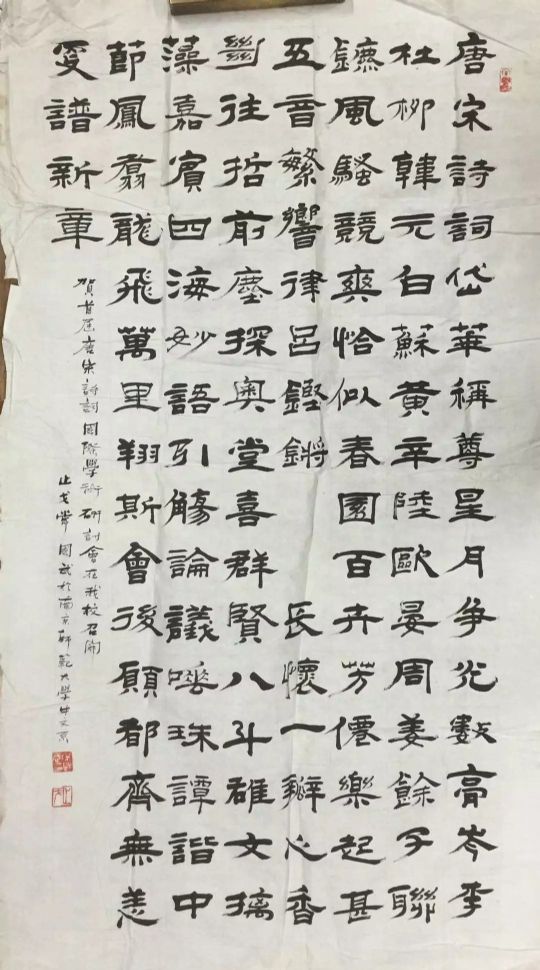 唐宋詩詞岱華稱尊星月爭光數高岑李
杜柳韓元白蘇黃辛陸歐晏周姜餘子聯
鑣風騷競爽恰似春園百卉芳僊樂起甚
五音繁響律呂鏗鏘 長懷一瓣心香
往哲前塵探奧堂喜群賢八斗雄文摛
藻嘉賓四海妙語引觴論議唾珠譚諧中
節鳳翥龍飛萬里翔斯會後願都齊無恙
更譜新章
賀首屆唐宋詩詞國際學術研討會在我校召開
止戈常國武於南京師範大學中文系